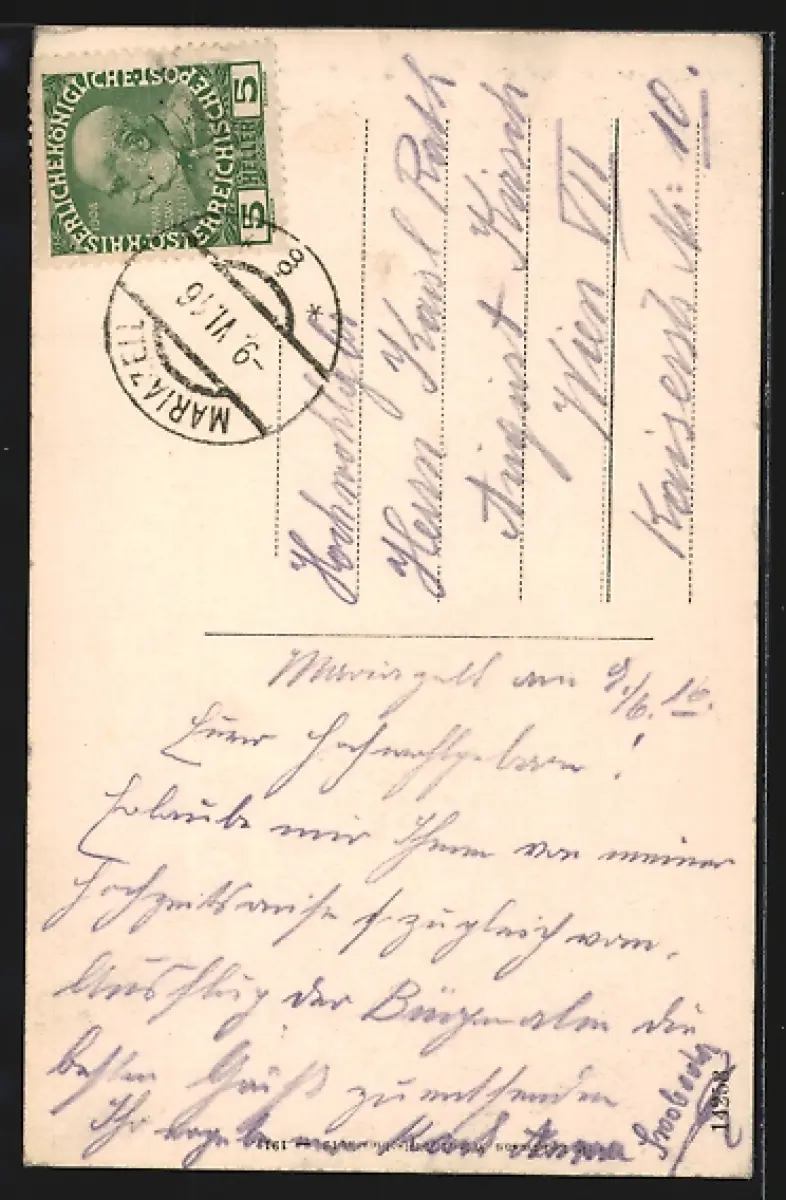 KAISERLICHE KÖNIGLICHE ÖSTERREICHISCHE POST
5 HELLER 5
MARIAZELL
-9.VI.16
8a *
Hochwohlgb.
Herrn Kaisl Rath
August Kirsch
Wien VII
Kaiserstr. Nr: 10.
Mariazell am 9./6. 16.
Euer Hochwohlgeboren!
Erlaube mir Ihnen von meiner
Hochzeitsreise zugleich vom
Ausflug der Bürgeralm die
besten Grüße zu entsenden
Ihr ergebener
Swoboda
14258